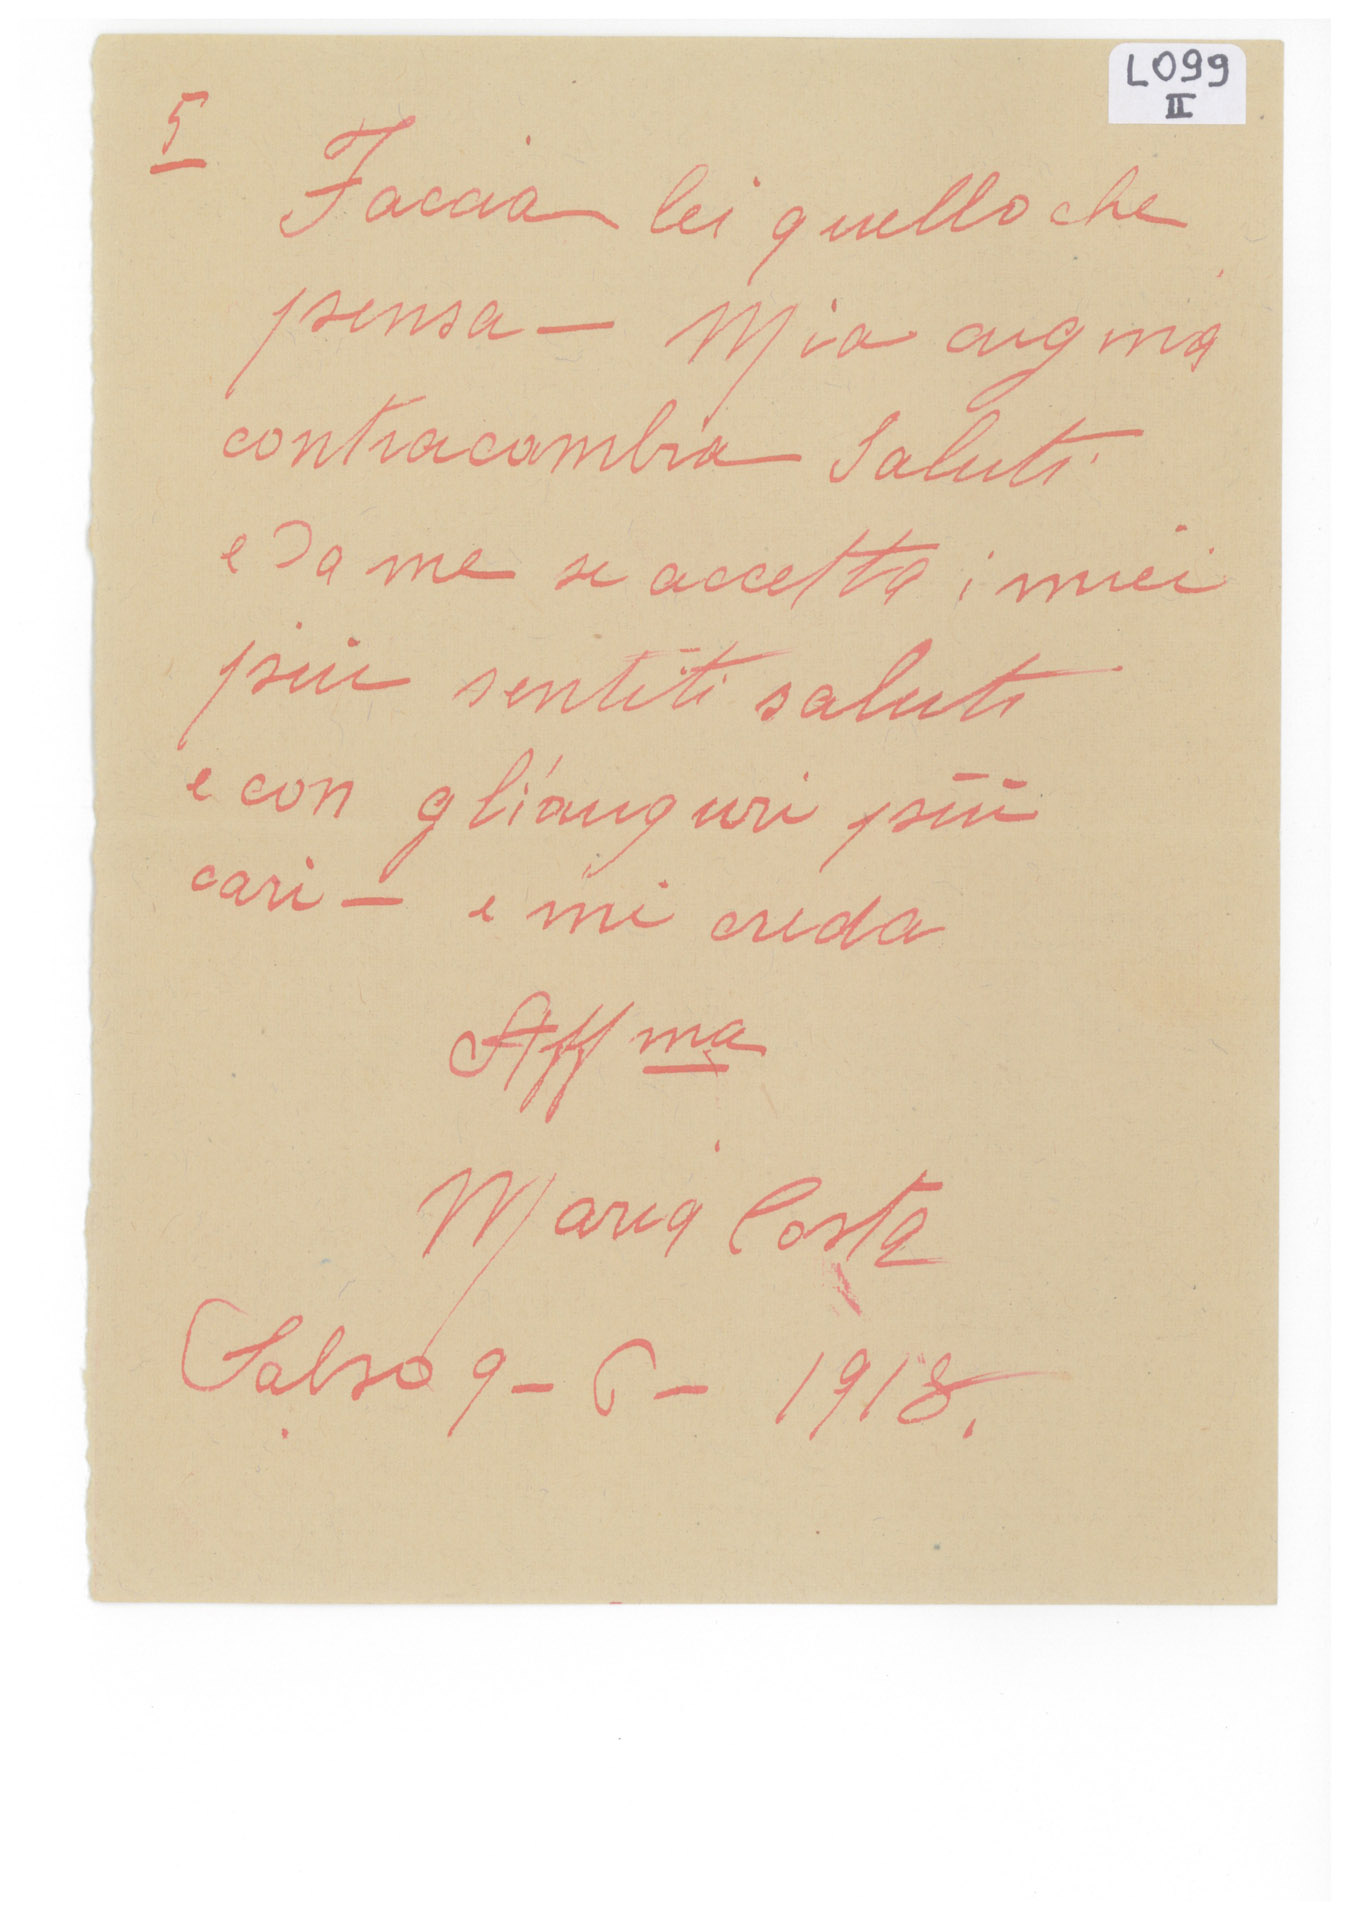 L099
II
5
Faccia lei quello che
pensa - Mia cugina
contracambia Saluti
e da me se accetta i miei
più sentiti saluti
e con gli'auguri più
cari - e mi creda
Affma
Maria Costa
Salso 9 - 6 - 1918.